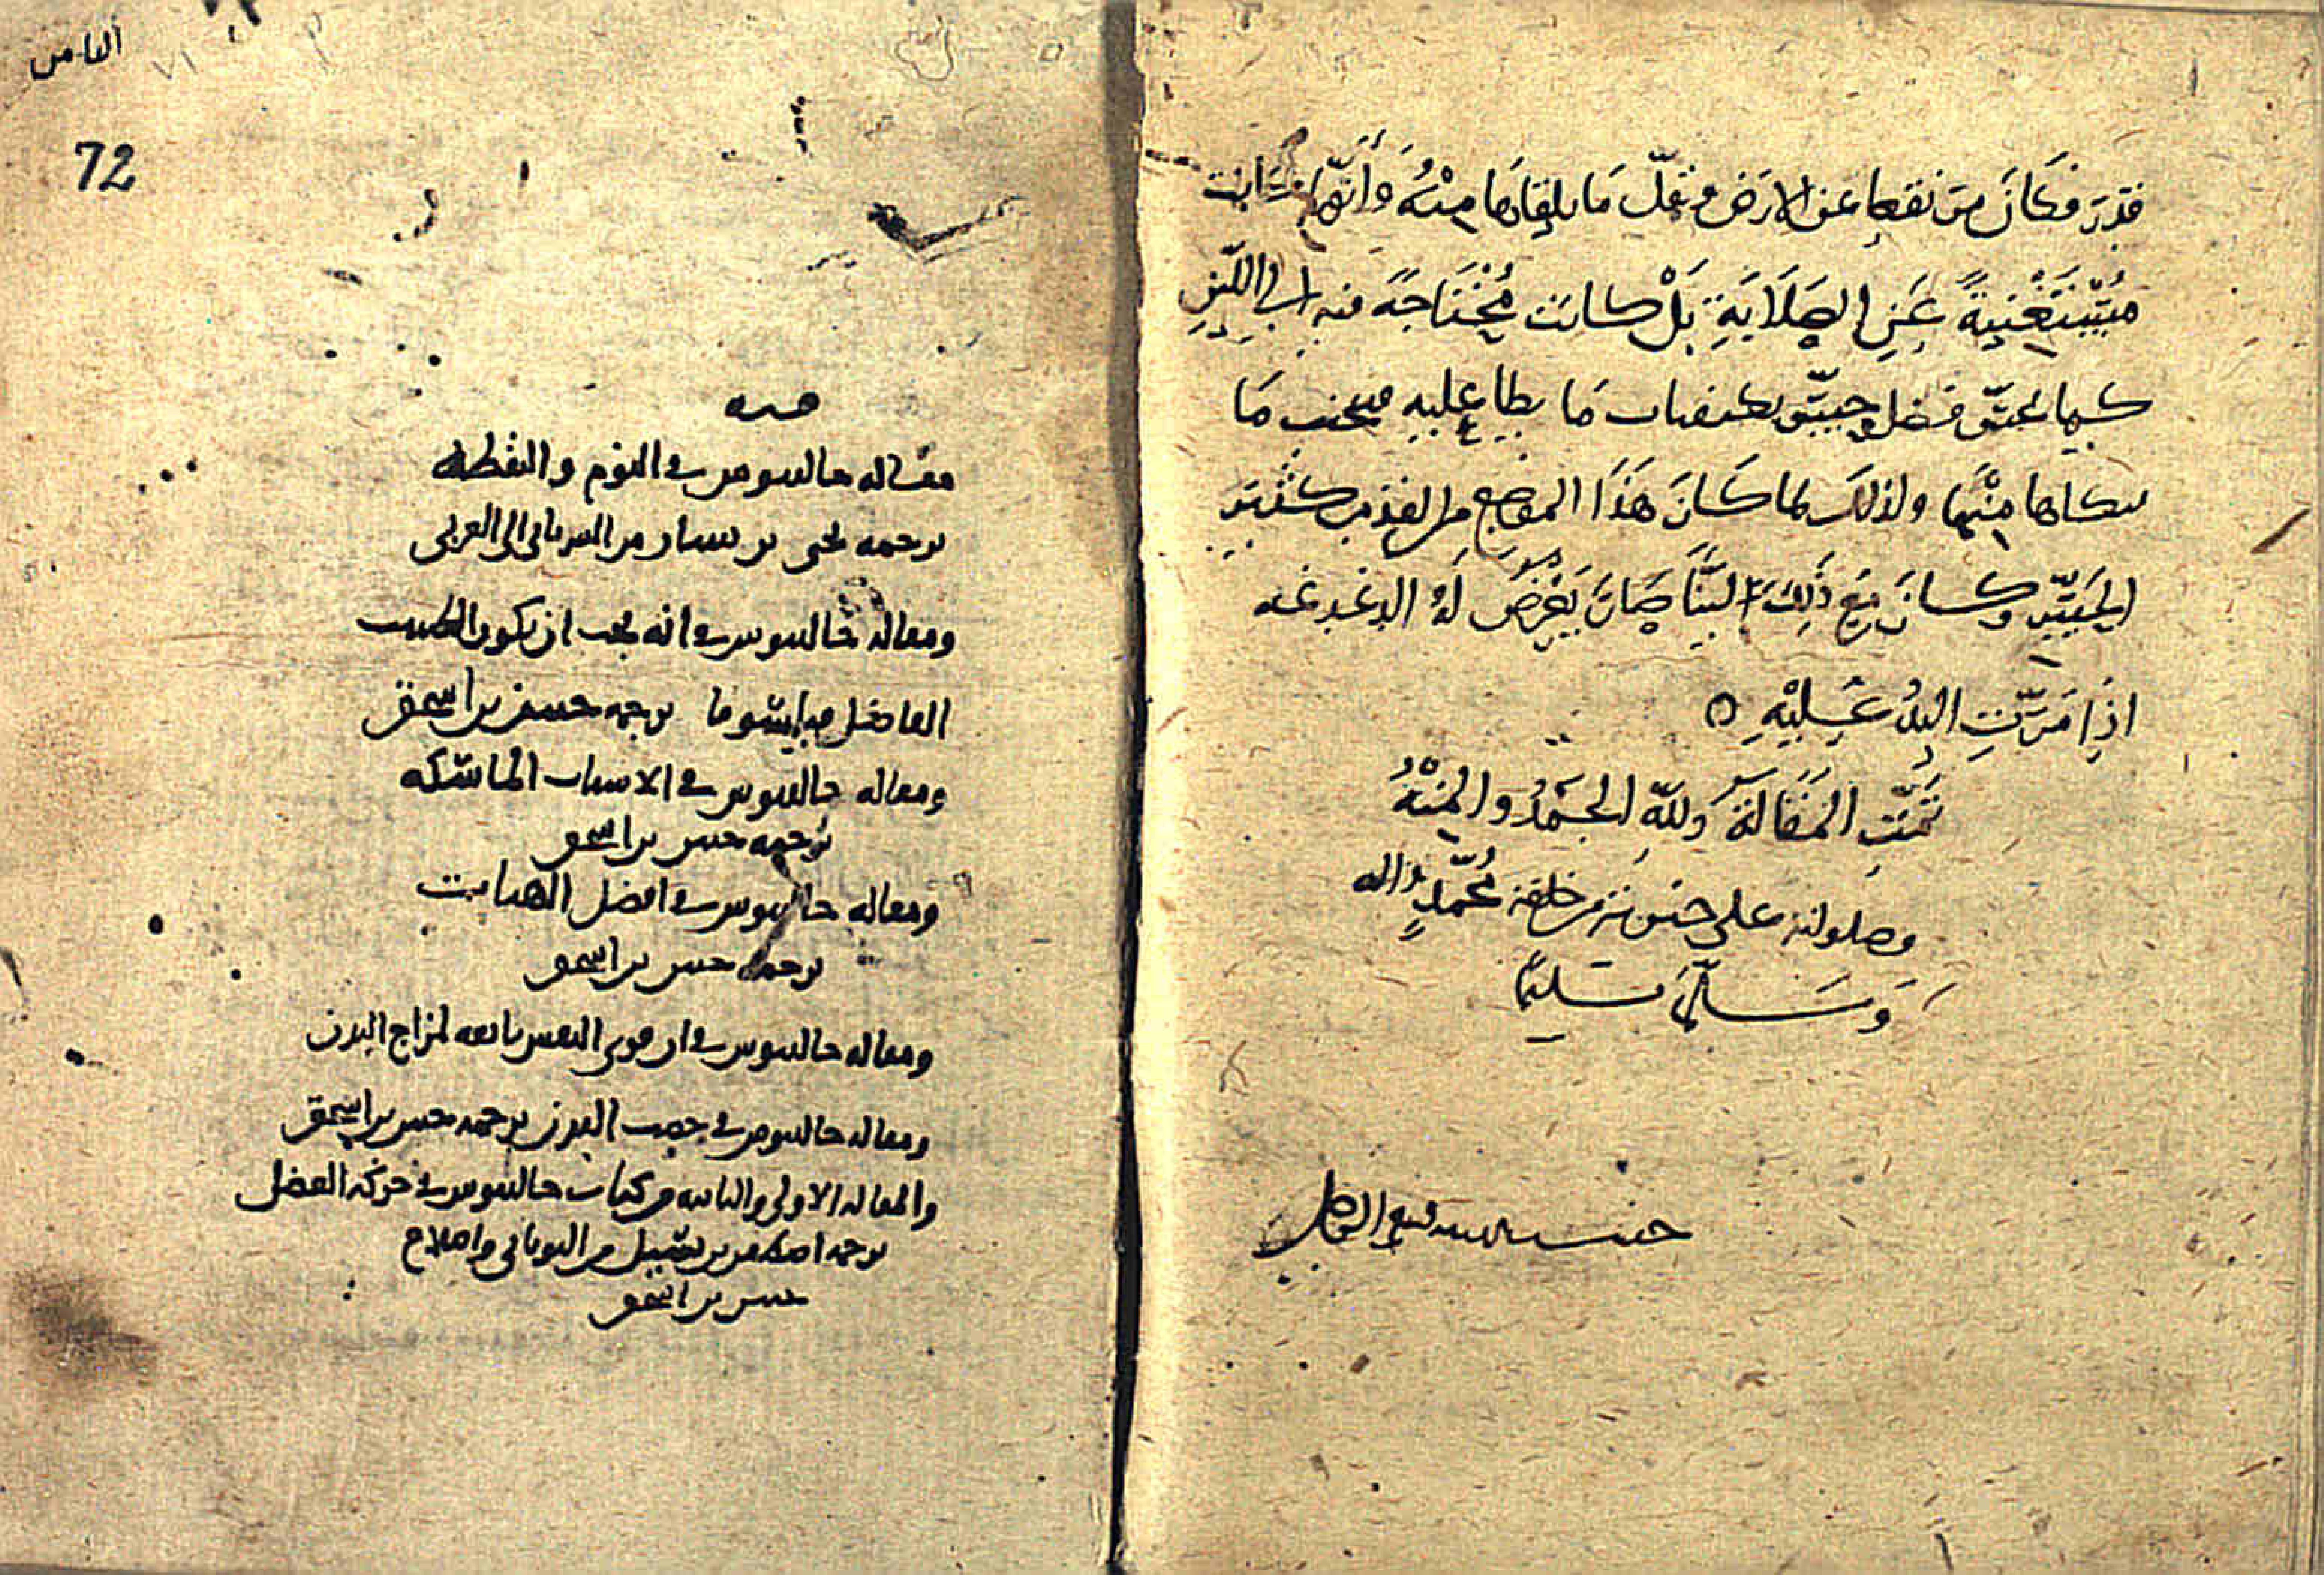 فكان من نقعها عن الارض ونقل ما يلقاها منه وانها
مستغنية عن الصلابة بل كانت محتاجة فيه الى اللين
كيما فضل بكيفيات ما يطا عليه ما
منها ولذلك لما كان هذا الموضع من القدم كثير
الحس وكان مع ذلك لينا صار يعرض له الدغدغه
اذا مرت اليد عليه
تمت المقالة ولله الحمد والمنة
وصلواته على خيرته من خلقه محمد واله
وسلم تسليما
حسبنا الله ونعم الوكيل
القامس
72
فيه
مقاله حالسوس في النوم واليقظه
ترجمه من السرياني الى العربي
ومقاله جالسوس في انه يجب ان يكون الطبيب
الفاضل فيلسوفا ترجمه حنين بن اسحق
ومقاله جالسوس في الاسباب الماسكه
ترجمه حنين بن اسحق
ومقاله حالسوس في افضل الهيات
ترجمه حنين بن اسحق
ومقاله حالسوس في ان قوى النفس تابعه لمزاج البدن
ومقاله حالسوس في خصب البدن ترجمه حنين بن اسحق
والمقاله الاولى والثانيه من كتاب حالسوس في حركه العضل
ترجمه اصطفن بن بسيل من اليوناني واصلاح
حنين بن اسحق